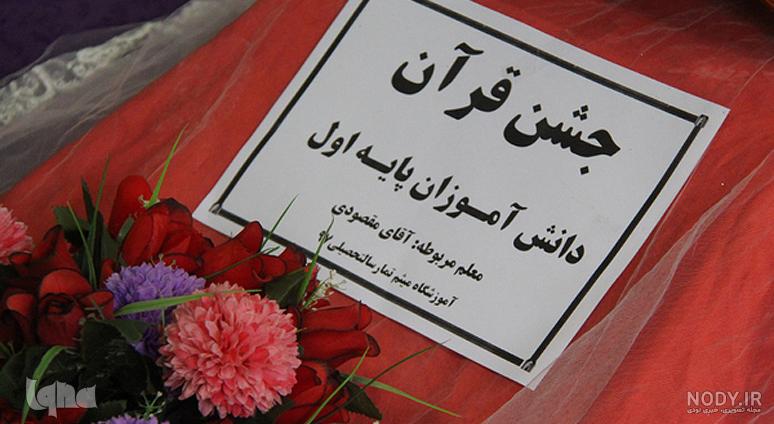 جشن قرآن
دانش آموزان پایه اول
معلم مربوطه: آقای مقصودی
آموزشگاه میثم تمار سالتحصیلی
iqna
NODY.IR
مجله تصویری، خبری نودی